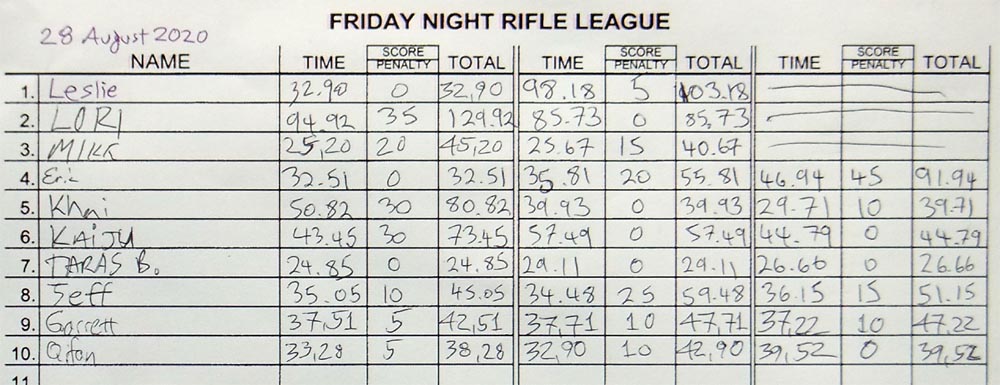 FRIDAY NIGHT RIFLE LEAGUE
28 August 2020
NAME TIME SCORE PENALTY TOTAL TIME SCORE PENALTY TOTAL TIME SCORE PENALTY TOTAL
1. Leslie 32.90 0 32,90 98.18 5 103.18
2. LORI 94.92 35 129.92 85.73 0 85,73
3. MIKE 25,20 20 45,20 25.67 15 40.67
4. Eric 32.51 0 32.51 35.81 20 55.81 46.94 45 91.94
5. Khai 50.82 30 80.82 39.93 0 39.93 29.71 10 39.71
6. KAIJU 43.45 30 73.45 57.49 0 57.49 44.79 0 44.79
7. TARAS B. 24.85 0 24.85 29.11 0 29.11 26.66 0 26.66
8. Jeff 35.05 10 45.05 34.48 25 59.48 36.15 15 51.15
9. Garrett 37,51 5 42,51 37,71 10 47,71 37,22 10 47,22
10. Qifan 33,28 5 38,28 32,90 10 42,90 39,52 0 39,52
11